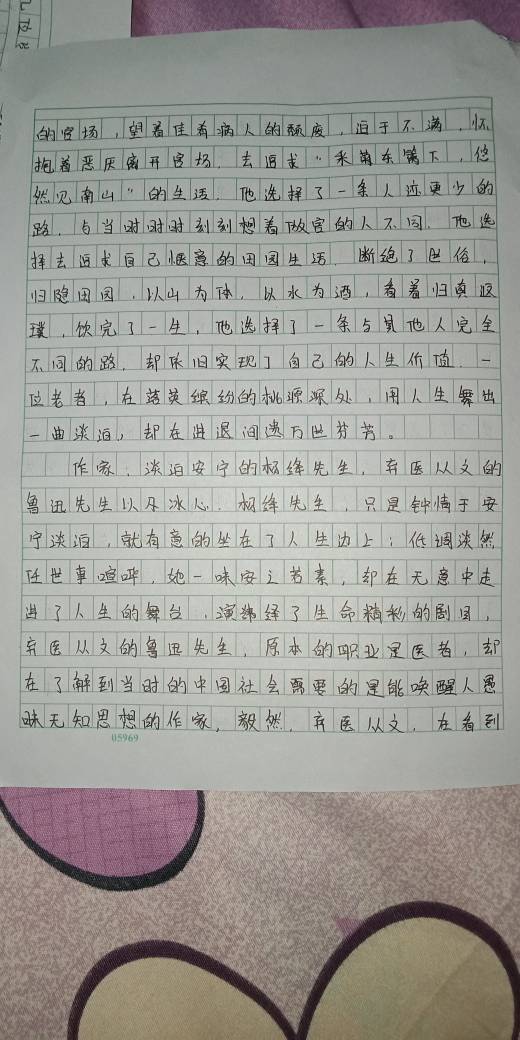 的官场，望着住着病人的颓废，迫于不满，怀
抱着恶厌离开官场，去追求“采菊东篱下，悠
然见南山”的生活。他选择了一条人迹更少的
路，与当时时时刻刻想着做官的人不同，他选
择去追求自己惬意的田园生活，断绝了世俗，
归隐田园，以山为伴，以水为酒，看着归真返
璞，饮完了一生，他选择了一条与其他人完全
不同的路，却依旧实现了自己的人生价值，一
位老者，在落英缤纷的桃源深处，用人生舞出
一曲淡泊，却在进退间遗万世芬芳。
作家，淡泊安宁的杨绛先生，弃医从文的
鲁迅先生以及冰心。杨绛先生，只是钟情于安
宁淡泊，就有意的坐在了人生边上；低调淡然
任世事喧哗，她一味安之若素，却在无意中走
进了人生的舞台，演绎了生命精彩的剧目，
弃医从文的鲁迅先生，原本的职业是医者，却
在了解到当时的中国社会需要的是能唤醒人愚
昧无知思想的作家，毅然，弃医从文，在看到
05969